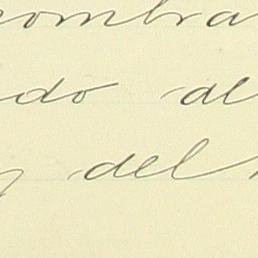 combra
do al
del